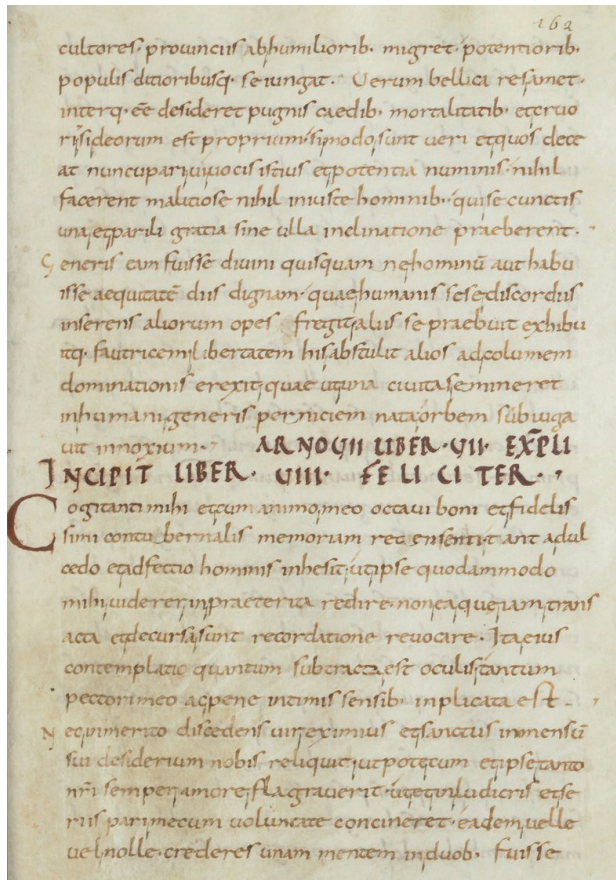 162
cultores· prouinciis abhumiliorib· migret· potentiorib·
populis ditioribusq· seiungat· Uerum bellica resamet·
interq· eē desideret pugnis caedib· mortalitatib· etcruo
ri sideorum est proprium· simodo sunt ueri etquos dece
at nuncupari uiuocis istius etpotentia numinis· nihil
facerent malitiose nihil iniuste hominib· quise cunctis
una etparili gratia sine ulla inclinatione praeberent·
Generis eam fuisse diuini quisquam nehominū aut habu
isse aequitatē diis dignam· quaehumanis sese discordiis
inserens aliorum opes fregit aliis se praebuit exhibu
itq· fautricem libertatem his abstulit alios adcolumem
dominationis erexit· quae utuna ciuitas emineret
inhumani generis perniciem nata orbem subiuga
uit innoxium· ARNOUII LIBER· UII· EXPLI
INCIPIT LIBER· UIII· FELICITER·
Cogitanti mihi etcum animo meo octaui boni etfidelis
simi contubernalis memoriam recensenti tant adul
cedo etadfectio hominis inhesit· utipse quodammodo
mihi uiderer inpraeterita redire· non ea que iam trans
acta etdecursa sunt recordatione reuocare· Ita eius
contemplatio quantum subtracta est oculis tantum
pectori meo acpene intimis sensib· inplicata est
Necinmerito discedens uir eximius etsanctus inmensū
sui desiderium nobis reliquit· utpotecum etipse tanto
nr̄i semper amore flagrauerit· utetinludicris etse
riis pari mecum uoluntate concineret· eadem uelle
uel nolle· crederes unam mentem induob· fuisse